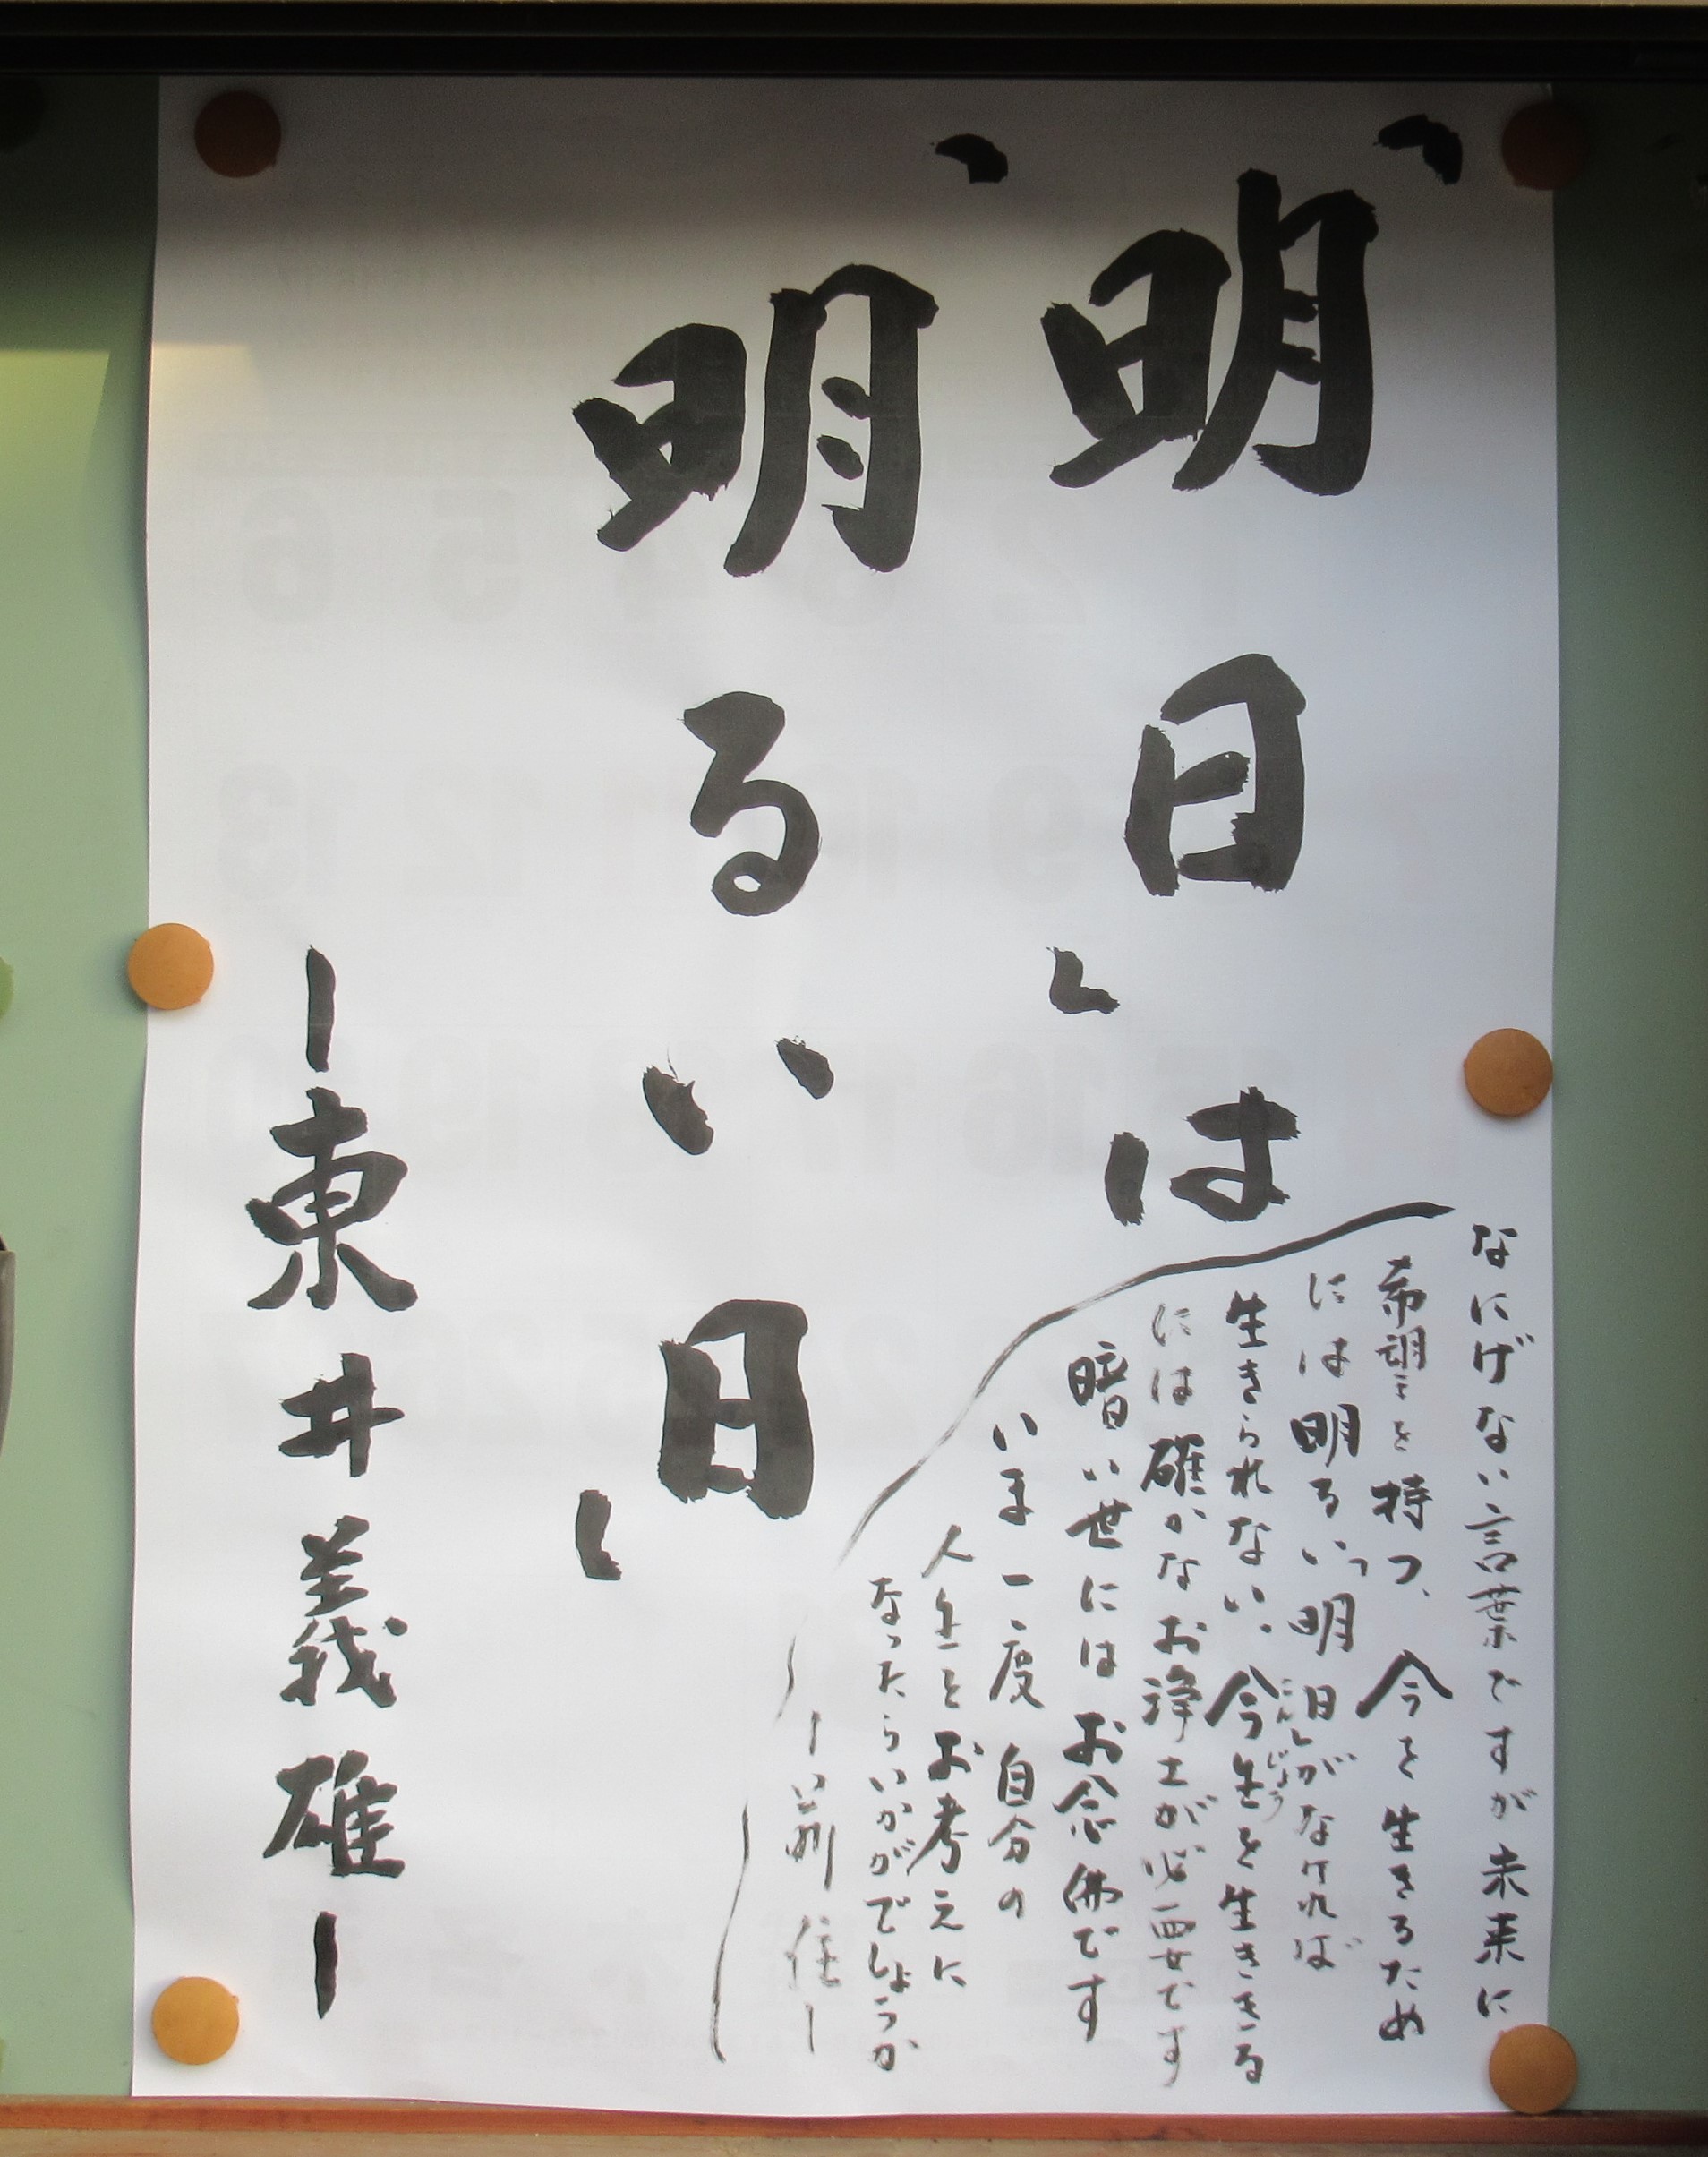 「明日」は
「明るい日」
―東井義雄―
なにげない言葉ですが未来に
希望を持つ、今を生きるため
には明るい「明日」がなければ
生きられない。今生を生ききる
こんじょう
には確かなお浄土が必要です
暗い世にはお念佛です
いま一度自分の
人生をお考えに
なったらいかがでしょうか
―前住―